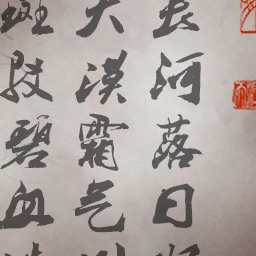 长河落日
大漠霜气
斑驳碧血